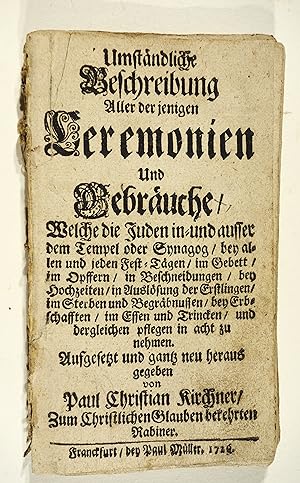 Umständliche
Beschreibung
Aller der jenigen
Ceremonien
Und
Gebräuche /
Welche die Juden in- und ausser
dem Tempel oder Synagog / bey al-
len und jeden Fest-Tägen / im Gebett /
im Opffern / in Beschneidungen / bey
Hochzeiten / in Auslösung der Erstlingen /
im Sterben und Begräbnussen / bey Erb-
schafften / im Essen und Trincken / und
dergleichen pflegen in acht zu
nehmen.
Aufgesetzt und gantz neu heraus
gegeben
von
Paul Christian Kirchner /
Zum Christlichen Glauben bekehrten
Rabiner.
Franckfurt / bey Paul Müller.